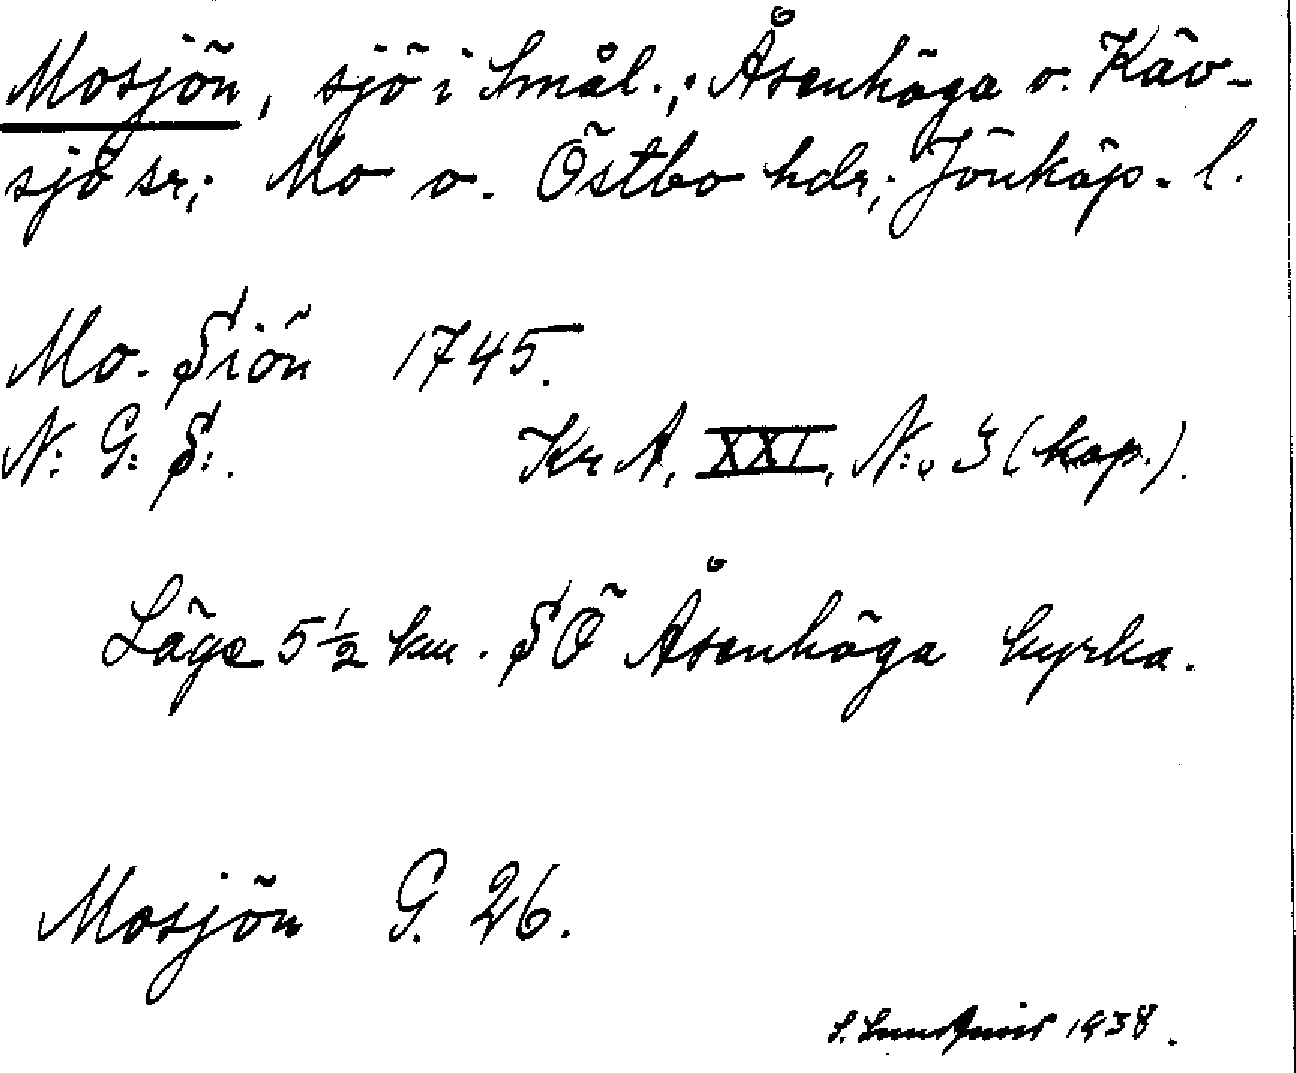 Mosjön, sjö i Smål.; Åsenhöga o. Käv-
sjö sr; Mo o. Östbo hdr; Jönköp. l.
Mo. Siön 1745.
N: G: S:. Kr A, XXI, N:o 3 (kop.).
Läge 5 1/2 km. SÖ Åsenhöga kyrka.
Mosjön G. 26.
S. Lundqvist 1938.